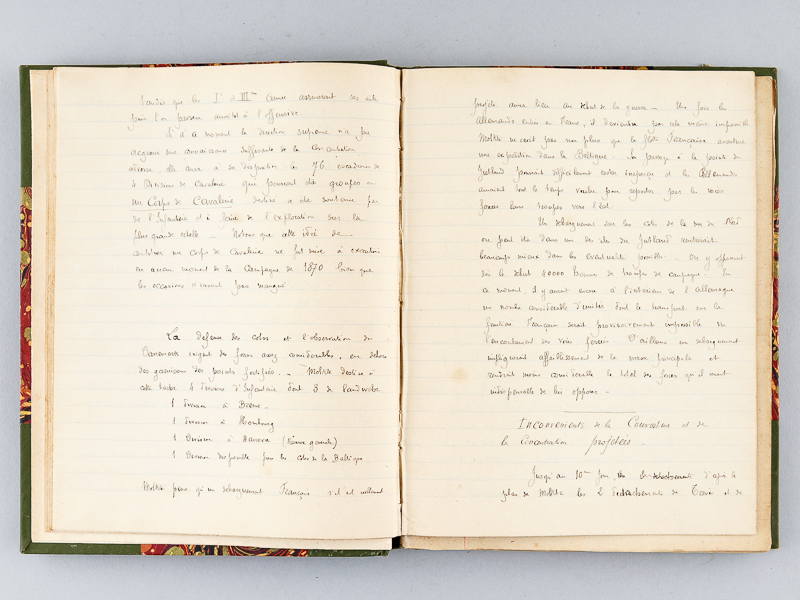 tandis que les Ie et IIIme Armée assureront ses ailes
puis l'on passera aussitôt à l'offensive
Si à ce moment la direction suprême n'a pu
acquérir une connaissance suffisante de la concentration
adverse elle aura à sa disposition les 76 escadrons de
4 Divisions de Cavalerie qui pourront être groupés en
un Corps de Cavalerie destiné à être soutenu par
de l'Infanterie et à faire de l'exploration sur la
plus grande échelle. Notons que cette idée de
constituer un corps de Cavalerie ne fut mise à exécution
en aucun moment de la Campagne de 1870 bien que
les occasions n'aient pas manqué
La défense des côtes et l'observation du
Danemark exigent des forces assez considérables, en dehors
des garnisons des points fortifiés. Moltke destine à
cette tâche 4 divisions d'Infanterie dont 3 de landwehr
1 Division à Brême
1 Division à Hambourg
1 Division à Hanovre (
1 Division disponible pour les côtes de la Baltique
Moltke pense qu'un débarquement Français s'il est vraiment
projeté aura lieu au début de la guerre. Une fois les
Allemands entrés en France, il deviendra par cela même impossible
Moltke ne croit pas non plus que la flotte Française aventure
une expédition dans la Baltique. Son passage à la pointe du
Jutland pourrait difficilement rester inaperçu et les Allemands
auraient tout le temps voulu pour reporter par les voies
ferrées leurs troupes vers l'Est.
Un débarquement sur les côtes de la mer du Nord
ou peut être dans un des îles du Jutland rentrerait
beaucoup mieux dans les éventualités possibles. On y opposerait
dès le début 40000 hommes de troupes de campagne. En
ce moment, il y aurait encore à l'intérieur de l'Allemagne
un nombre considérable d'unités dont le transport sur la
frontière Française serait provisoirement impossible vu
l'encombrement des voies ferrées. D'ailleurs un débarquement
impliquerait affaiblissement de la masse principale et
rendrait moins considérable le total des forces qu'il serait
indispensable de lui opposer.
Inconvénients de la Couverture et de
la Concentration projetées.
Jusqu'au 10me Jour, d'après le
plan de Moltke les 2 détachements de Trèves et de